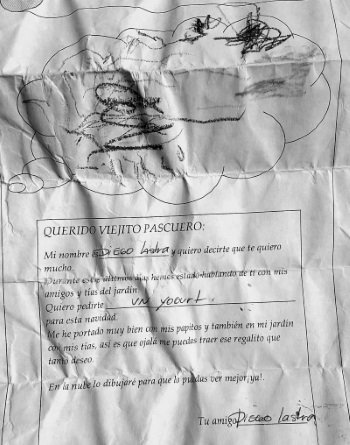 QUERIDO VIEJITO PASCUERO:
Mi nombre es DIEGO lastra y quiero decirte que te quiero
mucho.
Durante estos últimos días hemos estado hablando de ti con mis
amigos y tías del jardín.
Quiero pedirte un yogurt.
para esta navidad.
Me he portado muy bien con mis papitos y también en mi jardín
con mis tías, así es que ojalá me puedas traer ese regalito que
tanto deseo.
En la nube lo dibujaré para que lo puedas ver mejor, ya!.
Tu amigo DIEGO lastra